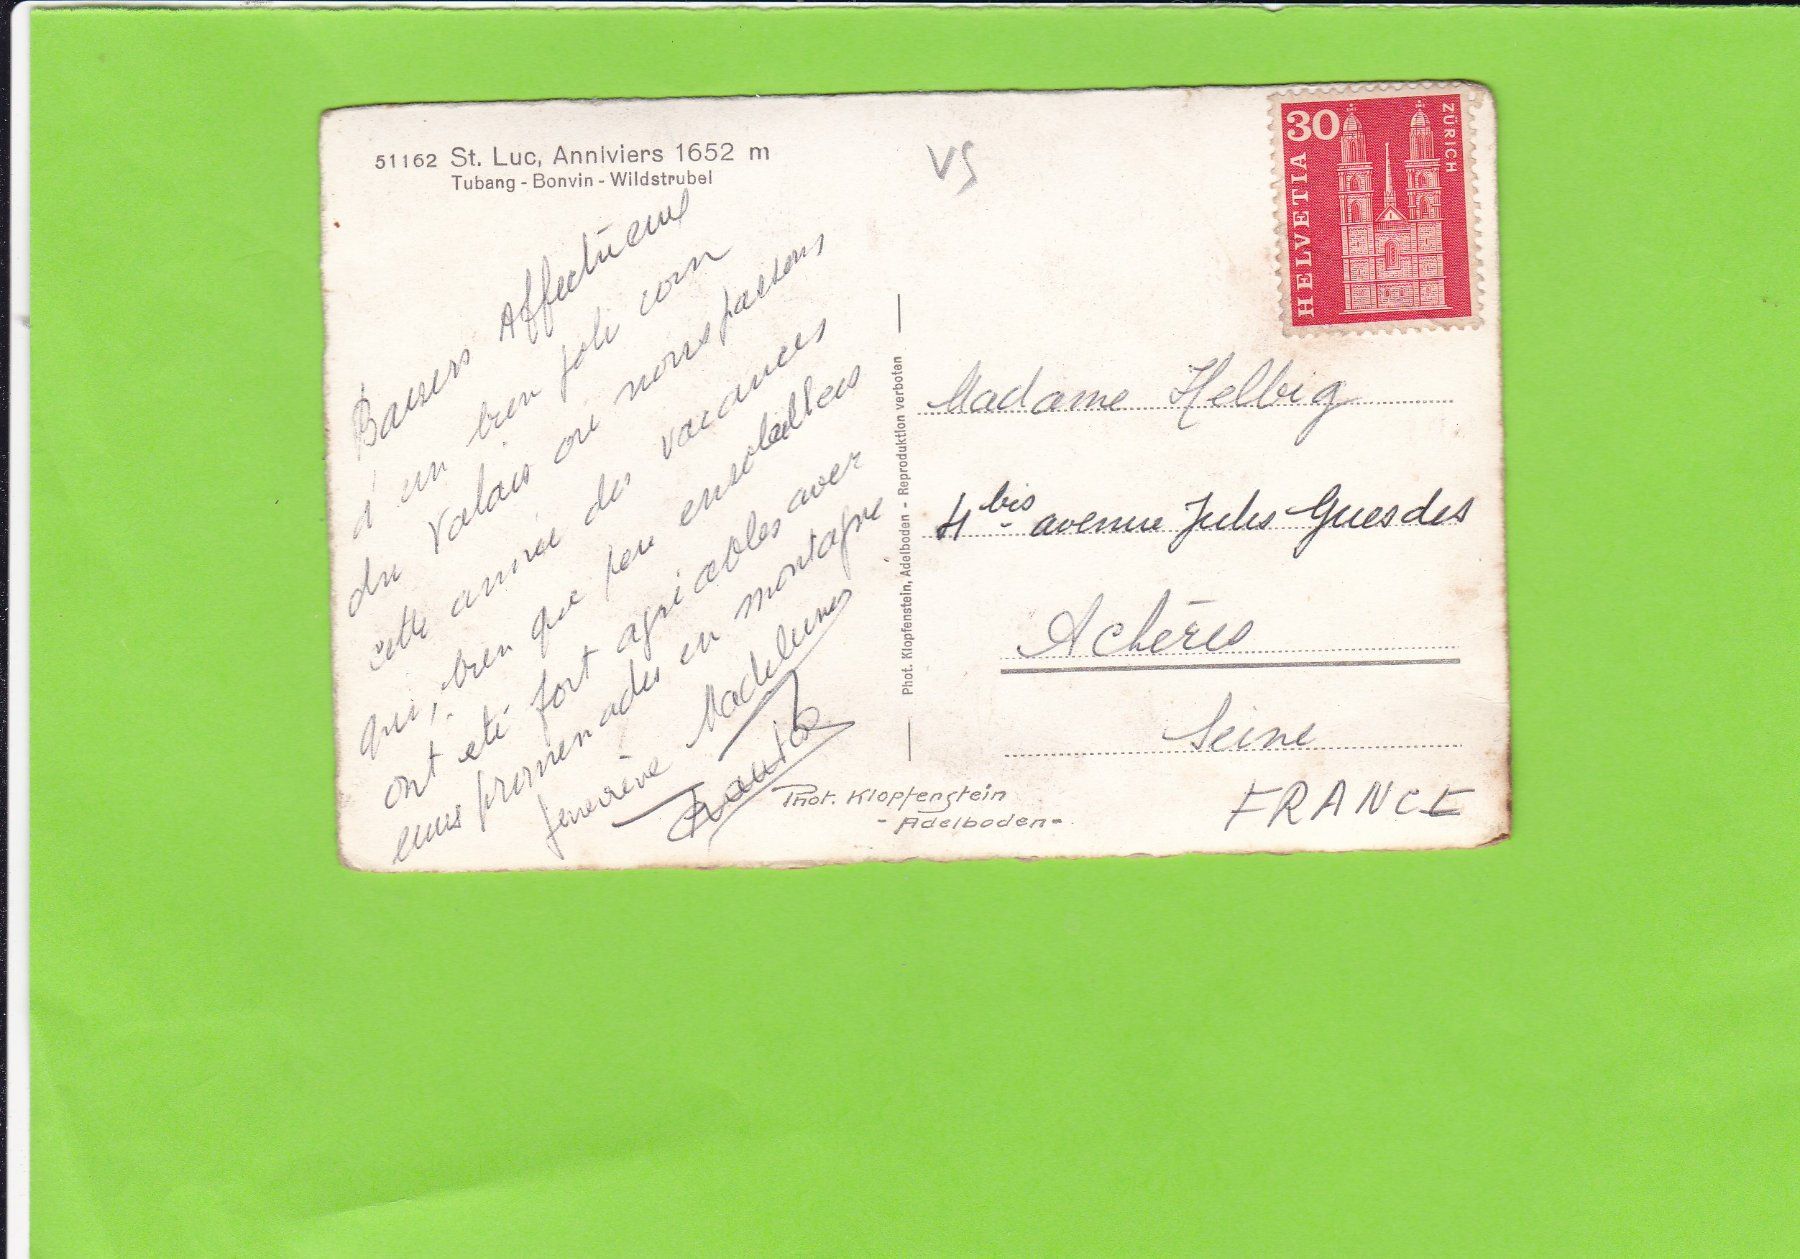 51162 St. Luc, Anniviers 1652 m
Tubang - Bonvin - Wildstrubel
Baisers Affectueux
d'un bien joli coin
du Valais où nous passons
cette année des vacances
qui, bien que peu ensoleillées
ont été fort agréables avec
promenades en montagne
Geneviève Madeleines
Phot. Klopfenstein
- Adelboden -
Phot. Klopfenstein, Adelboden - Reproduktion verboten
VS
30
HELVETIA
ZÜRICH
Madame Helbig
4 bis avenue Jules Guesdes
Achères
Seine
FRANCE